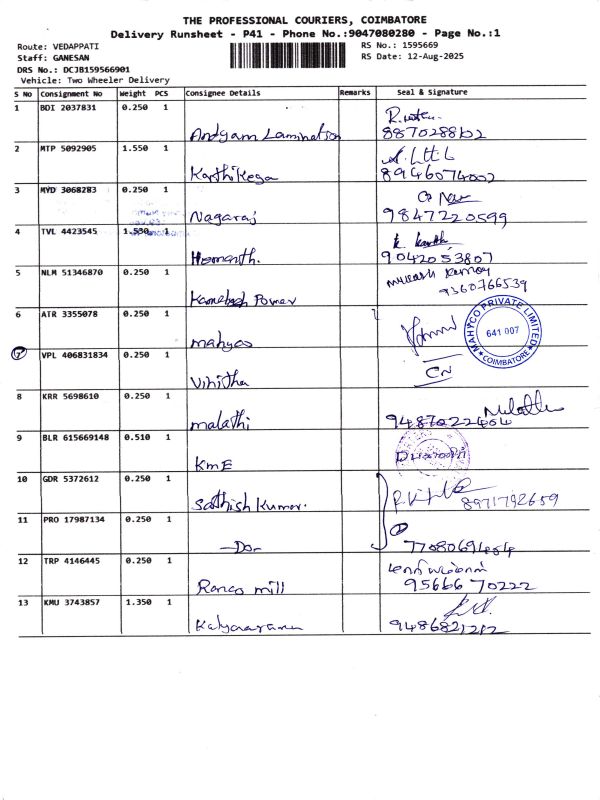 THE PROFESSIONAL COURIERS, COIMBATORE
Delivery Runsheet - P41 - Phone No.:9047080280 - Page No.:1
Route: VEDAPPATI
RS No.: 1595669
Staff: GANESAN
RS Date: 12-Aug-2025
DRS No.: DCJB159566901
Vehicle: Two Wheeler Delivery
S No Consignment No Weight PCS Consignee Details Remarks Seal & Signature
1 BDI 2037831 0.250 1
Andyam Lamination 8870288622
2 MTP 5092905 1.550 1
Karthikega 8946074002
3 MYD 3068283 0.250 1
Nagaraj 9847220599
4 TVL 4423545 1.530 1
Hemanth. 9042053807
5 NLM 51346870 0.250 1
9360766539
6 ATR 3355078 0.250 1
mahyco
MAHYCO PRIVATE LIMITED
641 007
COIMBATORE
7 VPL 406831834 0.250 1
Vinitha
8 KRR 5698610 0.250 1
malathi 9487022404
9 BLR 615669148 0.510 1
KmE
10 GDR 5372612 0.250 1
Sathish Kumar. 8971792659
11 PRO 17987134 0.250 1
-Do- 7708069464
12 TRP 4146445 0.250 1
mill 9566670222
13 KMU 3743857 1.350 1
9486821212